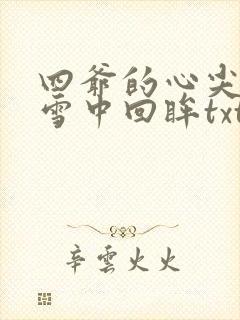 四爷的心尖
雪中回眸txt
辛雲火火